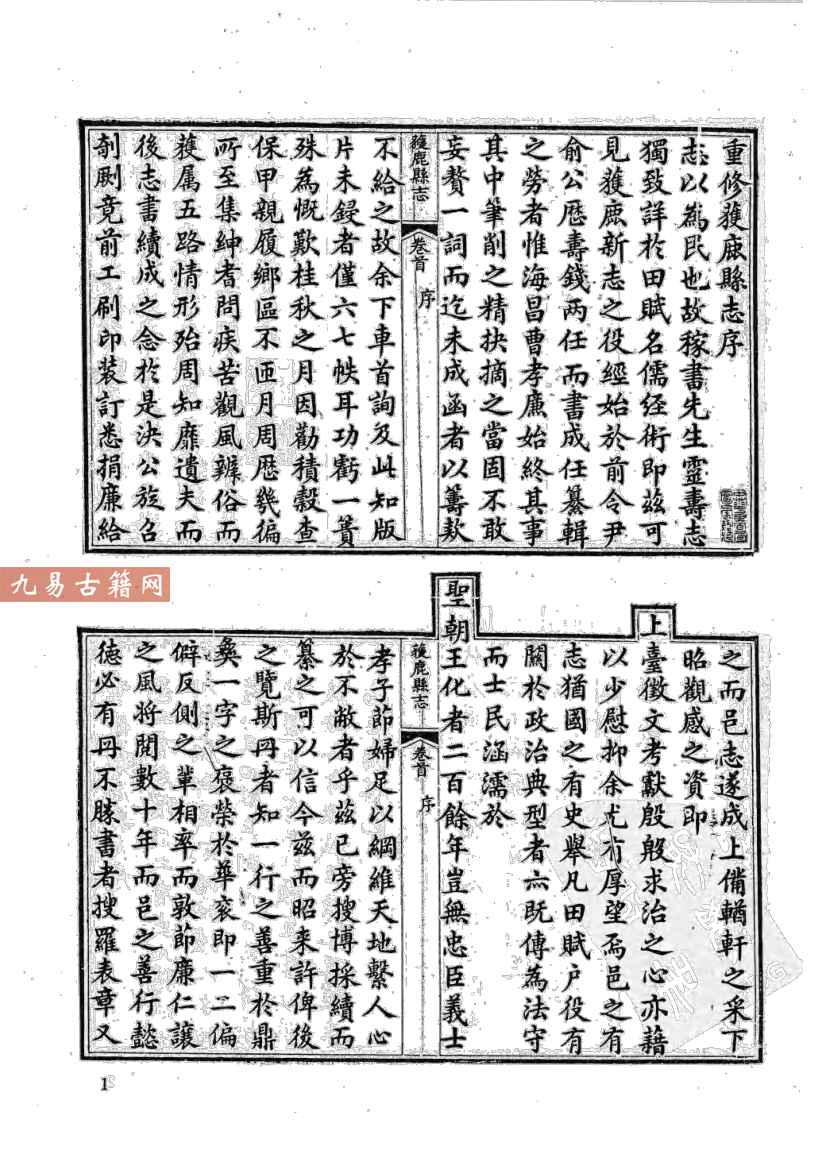 重修獲鹿縣志序
志以為民也故稼書先生靈壽志
獨致詳於田賦名儒經術即茲可
見獲鹿新志之役經始於前令尹
俞公歷壽錢两任而書成任纂輯
之勞者惟海昌曹孝廉始終其事
其中筆削之精抉摘之當固不敢
妄贅一詞而迄未成函者以籌欵
獲鹿縣志 卷首 序
不給之故余下車首詢及此知版
片未鋟者僅六七帙耳功虧一簣
殊為慨歎桂秋之月因勸積穀查
保甲親履鄉區不匝月周歷幾徧
所至集紳耆問疾苦觀風辨俗而
獲属五路情形殆周知靡遺夫而
後志書續成之念於是決公旋召
剞劂竟前工刷印装訂悉捐廉給
九易古籍网
之而邑志遂成上備輶軒之采下
昭觀感之資即
上臺徵文考獻殷殷求治之心亦藉
以少慰抑余尤有厚望焉邑之有
志猶國之有史舉凡田賦户役有
關於政治典型者亦既傳為法守
而士民涵濡於
聖朝王化者二百餘年豈無忠臣義士
獲鹿縣志 卷首 序
孝子節婦足以綱維天地繫人心
於不敝者乎茲已旁搜博採續而
纂之可以信今茲而昭来許俾後
之覽斯冊者知一行之善重於鼎
彝一字之褒榮於華衮即一二偏
僻反側之輩相率而敦節廉仁讓
之風將閱數十年而邑之善行懿
德必有冊不勝書者搜羅表章又
1